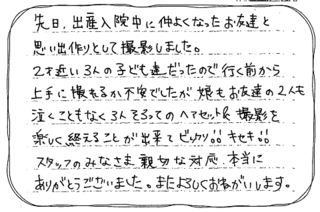 先日、出産入院中に仲よくなったお友達と
思い出作りとして撮影しました。
2才近い3人の子ども達だったので行く前から
上手に撮れるか不安でしたが娘もお友達の2人も
泣くこともなく3人そろってのヘアセット&撮影を
楽しく終えることが出来てビックリ!!キセキ!!
スタッフのみなさま親切な対応、本当に
ありがとうございました。またよろしくおねがいします。